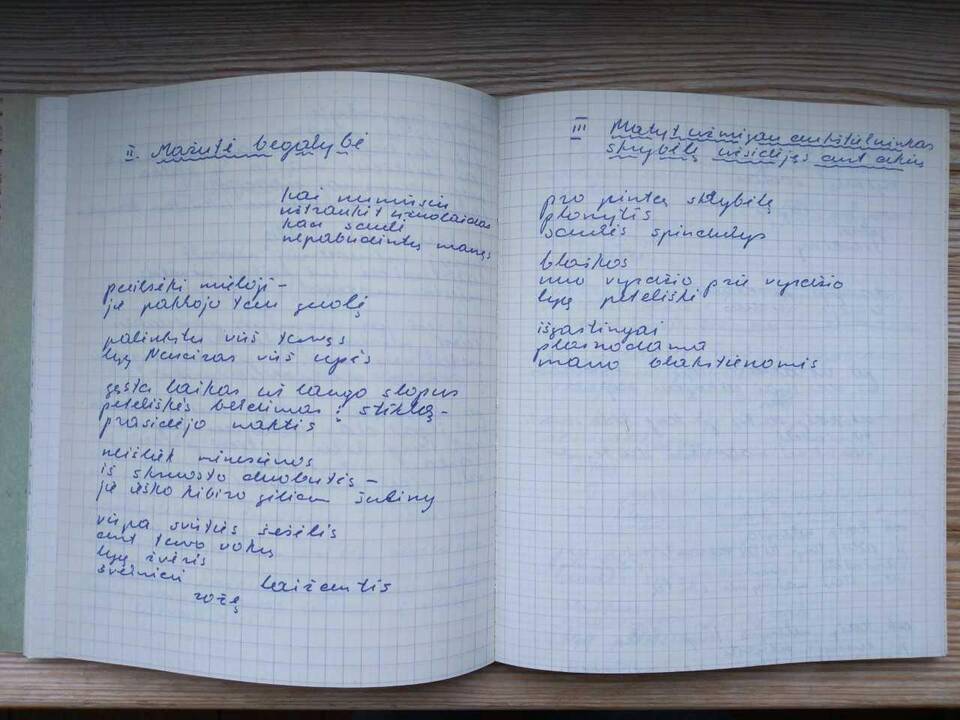 II. Mažutė begalybė
kai numirsiu
užtraukit užuolaidas
kad saulė
nepabudintų manęs
pailsėki mieloji –
jie paklojo tau guolį
palinksta virš tavęs
lyg Narcizas virš upės
gęsta laikas už lango slopus
peteliškės beldimas į stiklą –
prasidėjo naktis
neišliek mėnesienos
iš skruosto duobutės –
jie ieško kibiro giliam šuliny
virpa švitus šešėlis
ant tavo vokų
lyg žvėris
švelniai
laižantis
rožę
III Matyt užmigau aukštielninkas
skrybėlę užsidėjęs ant akių
pro pintą skrybėlę
plonytis
saulės spindulys
blaškos
nuo vyzdžio prie vyzdžio
lyg peteliškė
išgąstingai
plazdėdama
mano blakstienomis